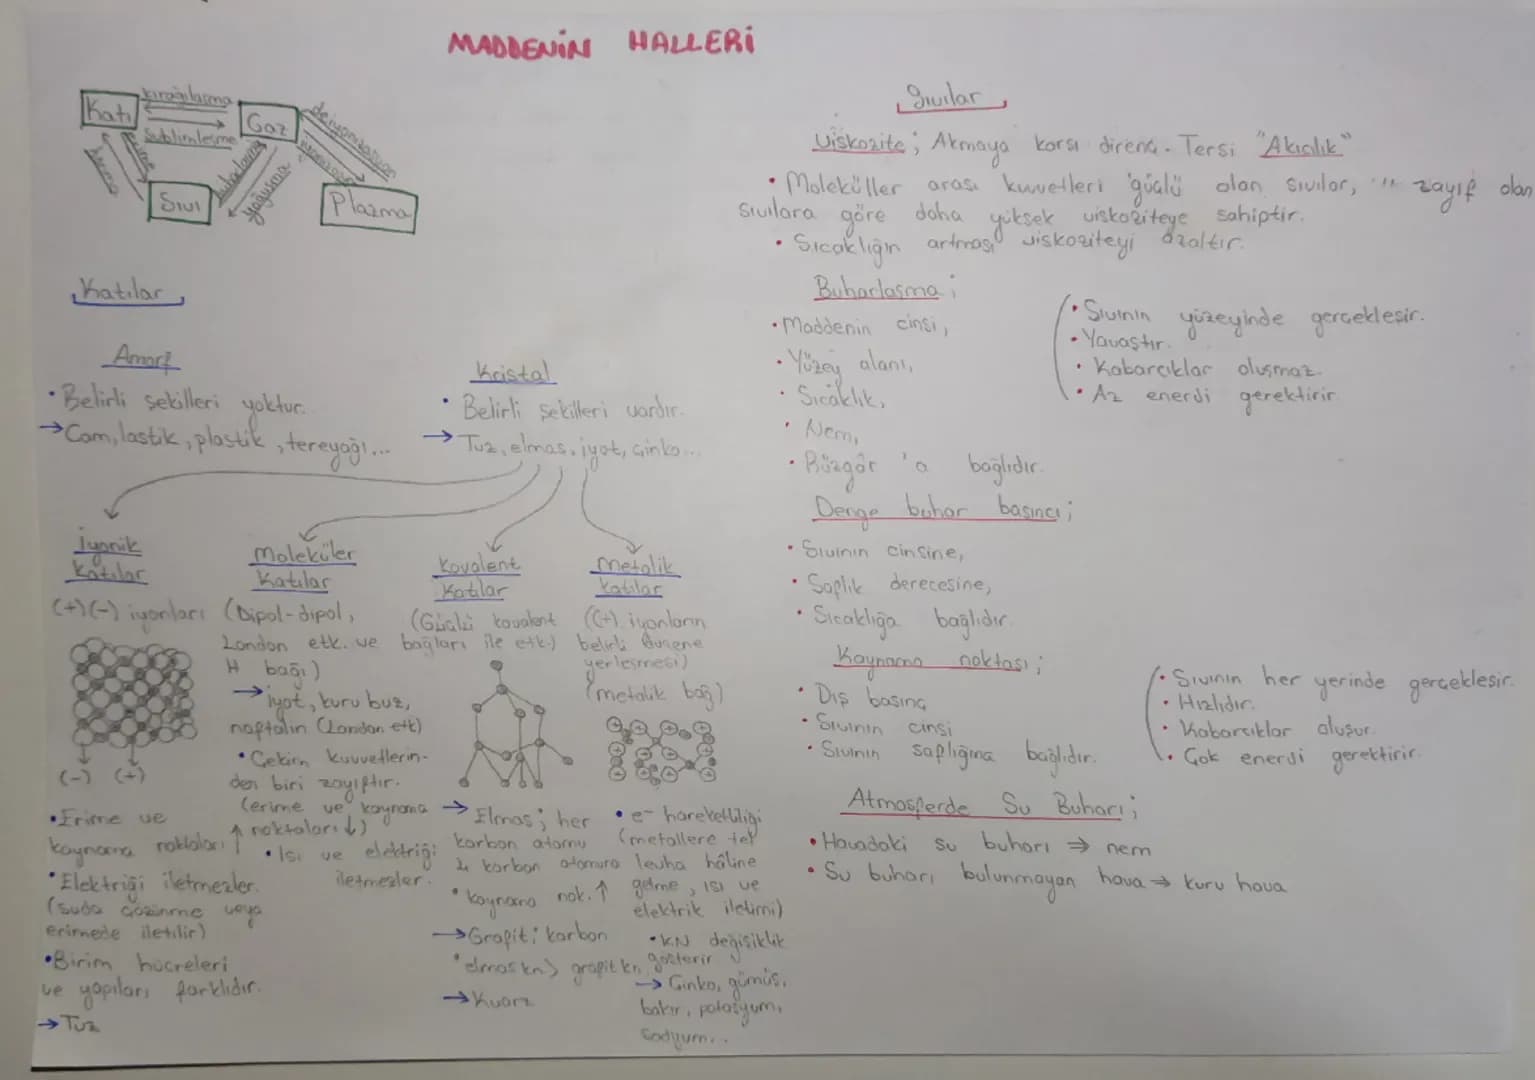 MADDENİN HALLERİ
Katı
kırağılaşma
Süblimleşme
Gaz
deiyonizasyon
iyonizasyon
Plazma
erime
donma
Sıvı
buharlaşma
yoğuşma
Katılar
Amorf
• Belirli şekilleri yoktur.
→ Cam, lastik, plastik, tereyağı...
Kristal
• Belirli şekilleri vardır.
→ Tuz, elmas, iyot, çinko...
İyonik
Katılar
(+)(-) iyonları
(-) (+)
• Erime ve
kaynama noktaları ↑
• Elektriği iletmezler.
(suda çözünme veya
erimede iletilir)
• Birim hücreleri
ve yapıları farklıdır.
→ Tuz
Moleküler
Katılar
(Dipol-dipol,
London etk. ve
H bağı)
→ iyot, kuru buz,
naftalin (London etk)
• Çekim kuvvetlerin-
den biri zayıftır.
(erime ve kaynama
noktaları ↓)
• Isı ve elektriği
iletmezler.
Kovalent
Katılar
(Güçlü kovalent
bağları ile etk.)
→ Elmas; her
karbon atomu
4 karbon atomuna
• kaynama nok. ↑
→ Grafit; karbon
• elmas kn > grafit kn
→ Kuarz
Metalik
Katılar
((+) iyonların
belirli düzene
yerleşmesi)
(metalik bağ)
• e⁻ hareketliliği
(metallere tel
levha hâline
gelme, ısı ve
elektrik iletimi)
• KN değişiklik
gösterir
→ Çinko, gümüş,
bakır, potasyum,
Sodyum...
Sıvılar
Viskozite; Akmaya karşı direnç. Tersi "Akıcılık"
• Moleküller arası kuvvetleri güçlü olan sıvılar, " zayıf olan
sıvılara göre daha yüksek viskoziteye sahiptir.
• Sıcaklığın artması viskoziteyi azaltır.
Buharlaşma;
• Maddenin cinsi,
• Yüzey alanı,
• Sıcaklık,
• Nem,
• Rüzgâr 'a bağlıdır.
• Sıvının yüzeyinde gerçekleşir.
• Yavaştır.
• Kabarcıklar oluşmaz.
• Az enerji gerektirir
Denge buhar basıncı;
• Sıvının cinsine,
• Saflık derecesine,
• Sıcaklığa bağlıdır.
Kaynama noktası;
• Dış basınç
• Sıvının cinsi
• Sıvının saflığına bağlıdır.
• Sıvının her yerinde gerçekleşir.
• Hızlıdır.
• Kabarcıklar oluşur.
• Çok enerji gerektirir.
Atmosferde Su Buharı;
• Havadaki su buharı ⇒ nem
• Su buharı bulunmayan hava → kuru hava